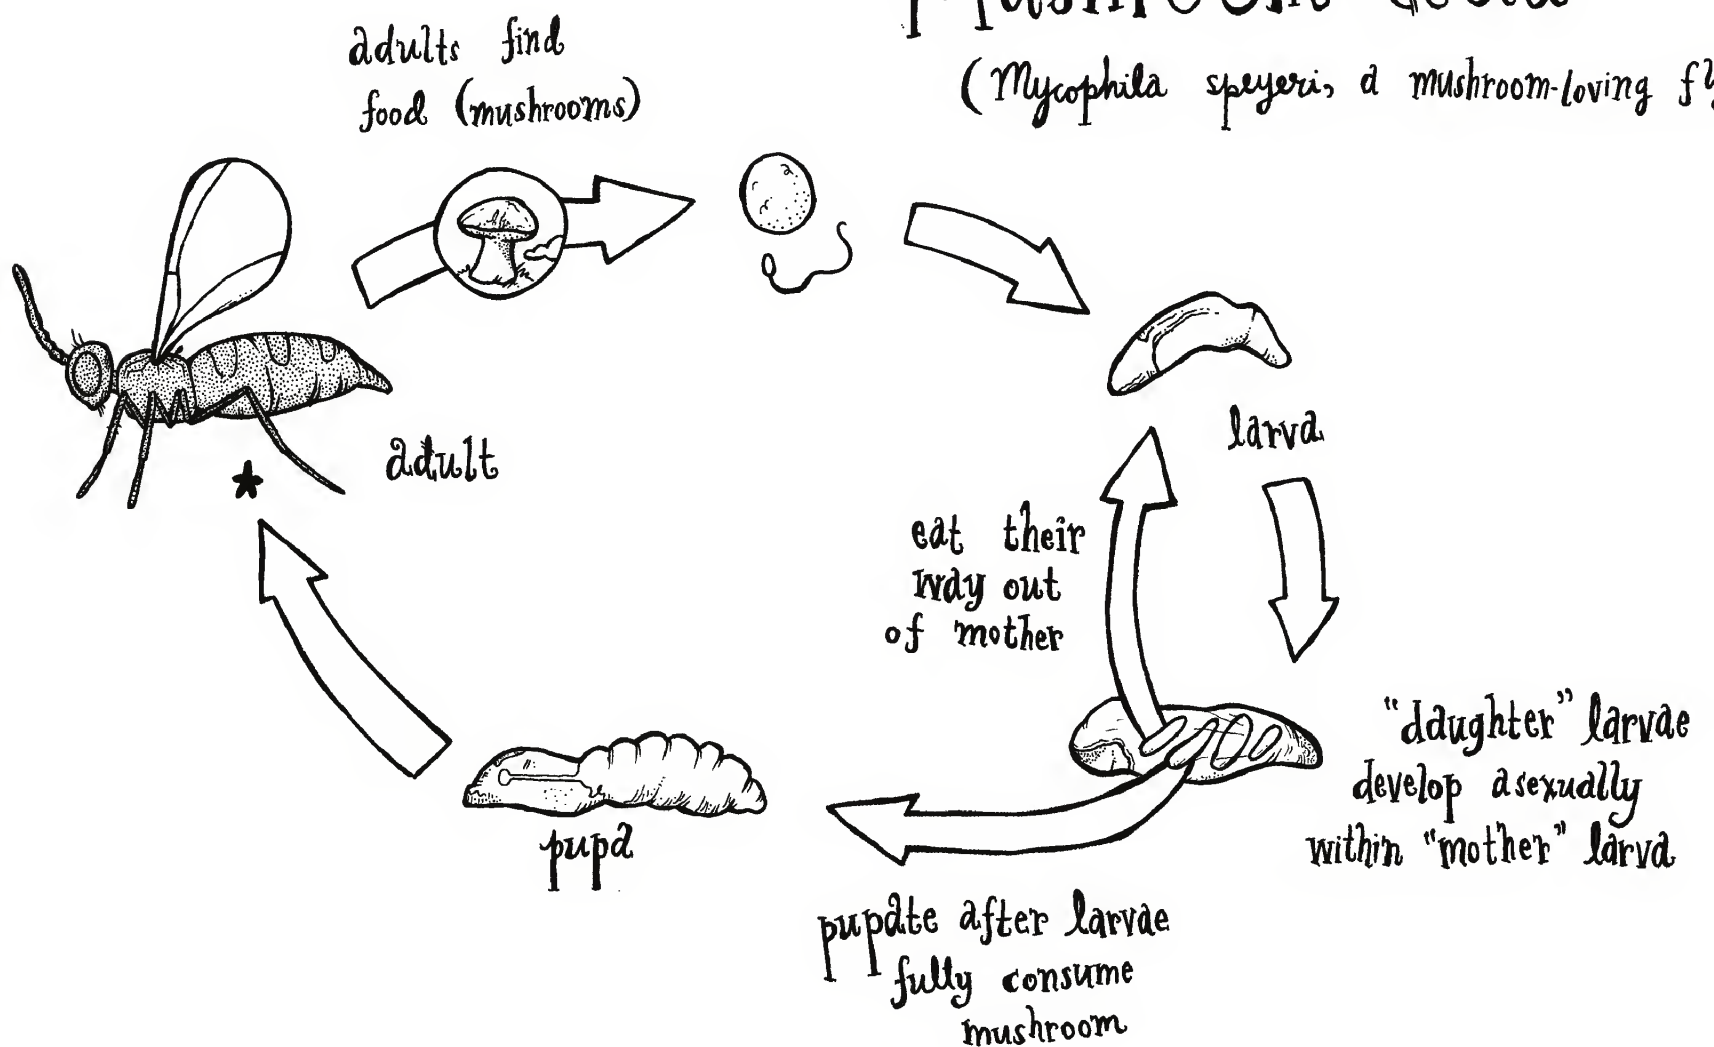 (Mycophila speyeri, a mushroom-loving
adults find
food (mushrooms)
adult
larva
eat their
way out
of mother
"daughter" larvae
develop asexually
within "mother" larva
pupa
pupate after larvae
fully consume
mushroom